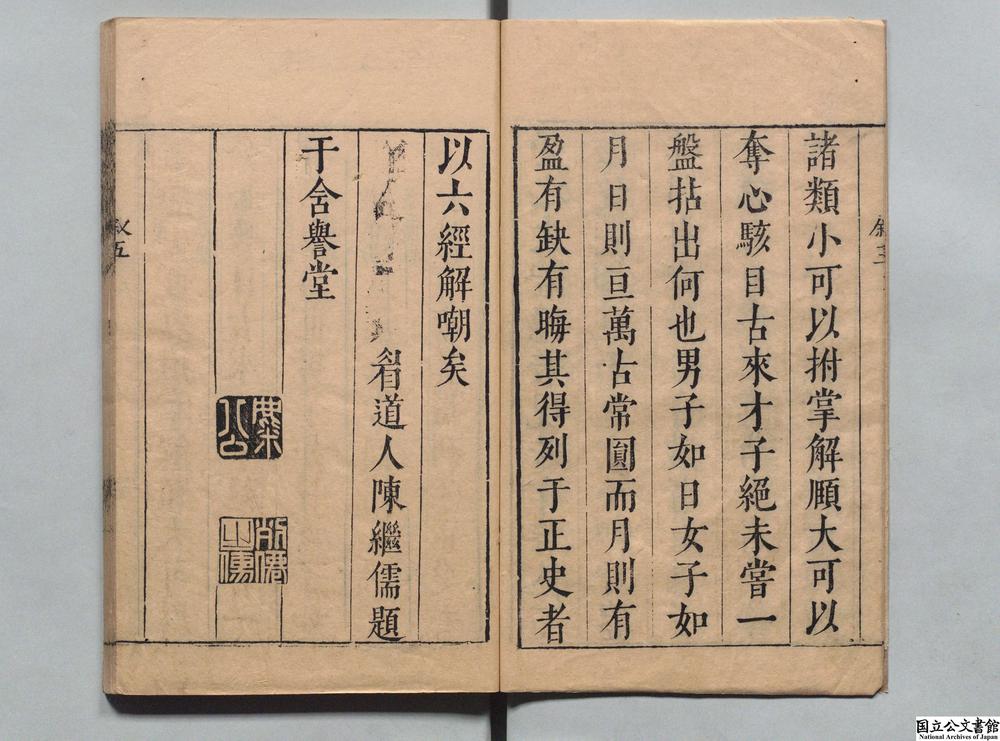 諸類小可以拊掌解頤大可以
奪心駭目古來才子絕未嘗一
盤拈出何也男子如日女子如
月日則亘萬古常圓而月則有
盈有缺有晦其得列于正史者
以六經解嘲矣
道人陳繼儒題
于含譽堂
麋
公
五
国立公文書館
National Archives of Japan